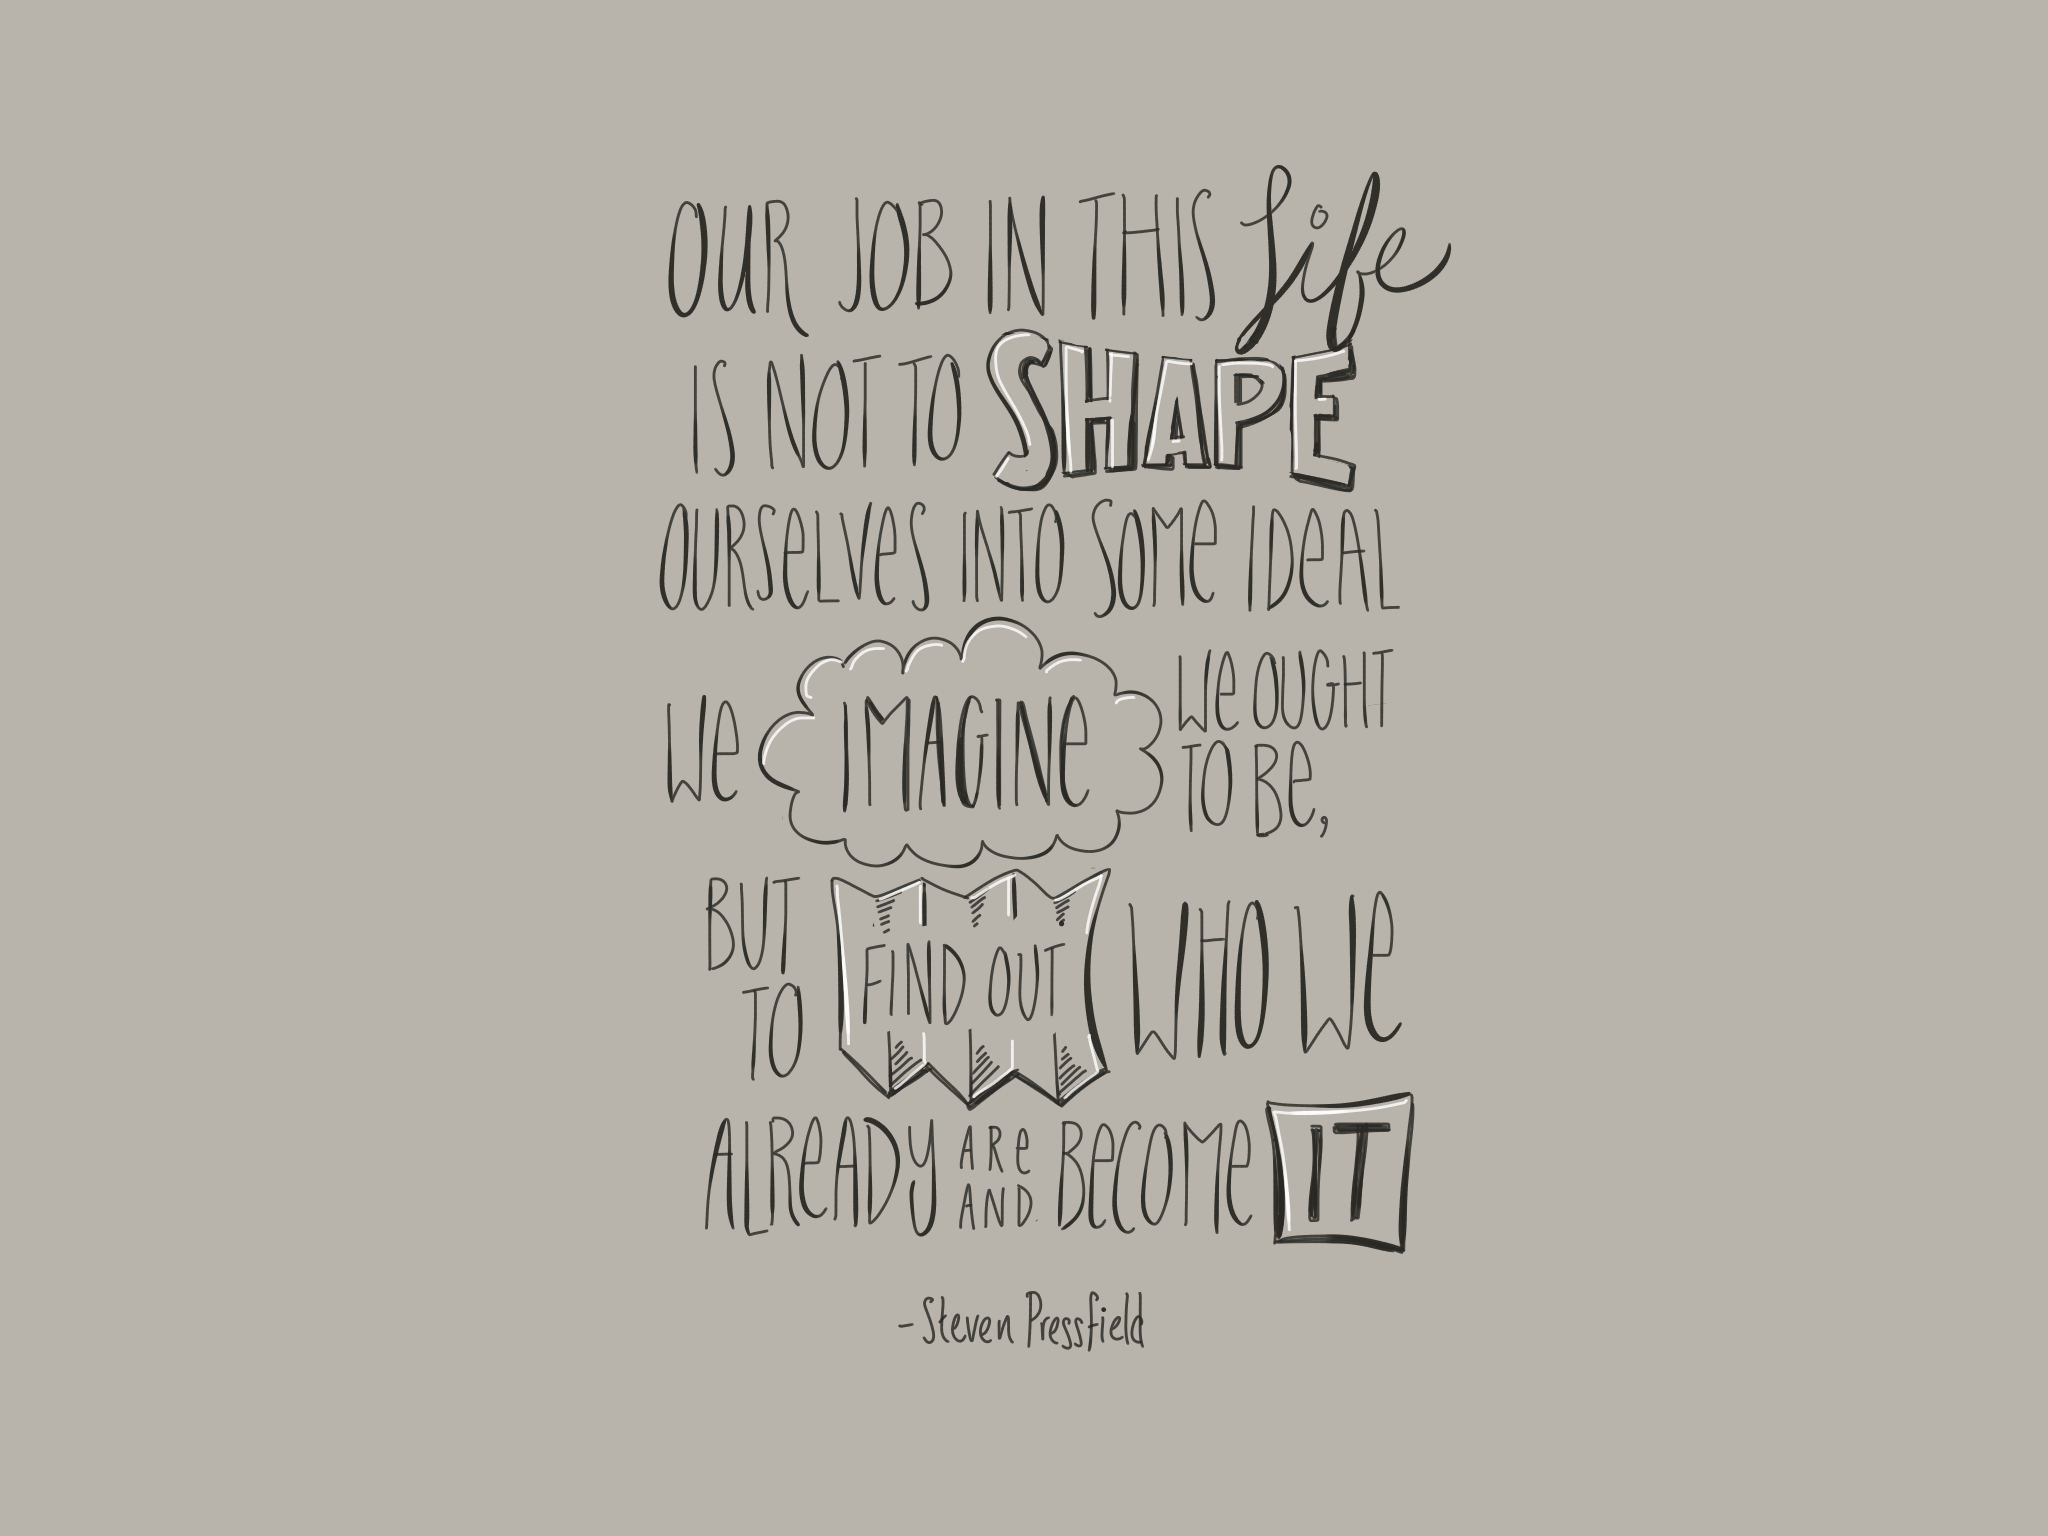 OUR JOB IN THIS Life
IS NOT TO SHAPE
OURSeLVeS INTO SOMe IDeAL
We IMAGINe We OUGHT
TO Be,
BUT
TO FIND OUT WHO We
ALReADy ARe
AND BeCOMe IT
-Steven Pressfield